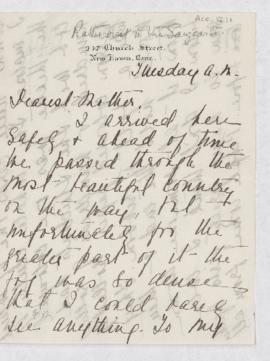 Acc.
245 Church Street.
New Haven, Conn.
Tuesday A.M.
Dearest Mother,
I arrived here
safely & ahead of time
we passed through the
most beautiful country
on the way, but
unfortunately for the
greater part of it the
fog was so dense
that I could barely
see anything. To my